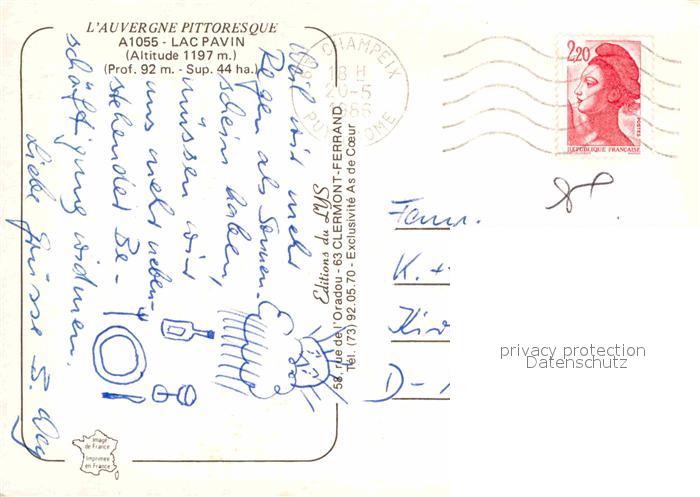 L'AUVERGNE PITTORESQUE
A1055 - LAC PAVIN
(Altitude 1197 m.)
(Prof. 92 m. - Sup. 44 ha.)
Weil wir mehr
Regen als Sonnen-
schein haben,
müssen wir
uns mehr neben-
stehender Be-
schäftigung widmen.
Liebe Grüsse
Editions du LYS
58, rue de l'Oradou - 63 CLERMONT-FERRAND
Tél. (73) 92.05.70 - Exclusivité As de Cœur
Image
de France
Imprimée
en France
CHAMPEIX
18 H
20-5
PUY DE DOME
2,20
POSTES
REPUBLIQUE FRANÇAISE
Fam.
K. +
D-
privacy protection
Datenschutz